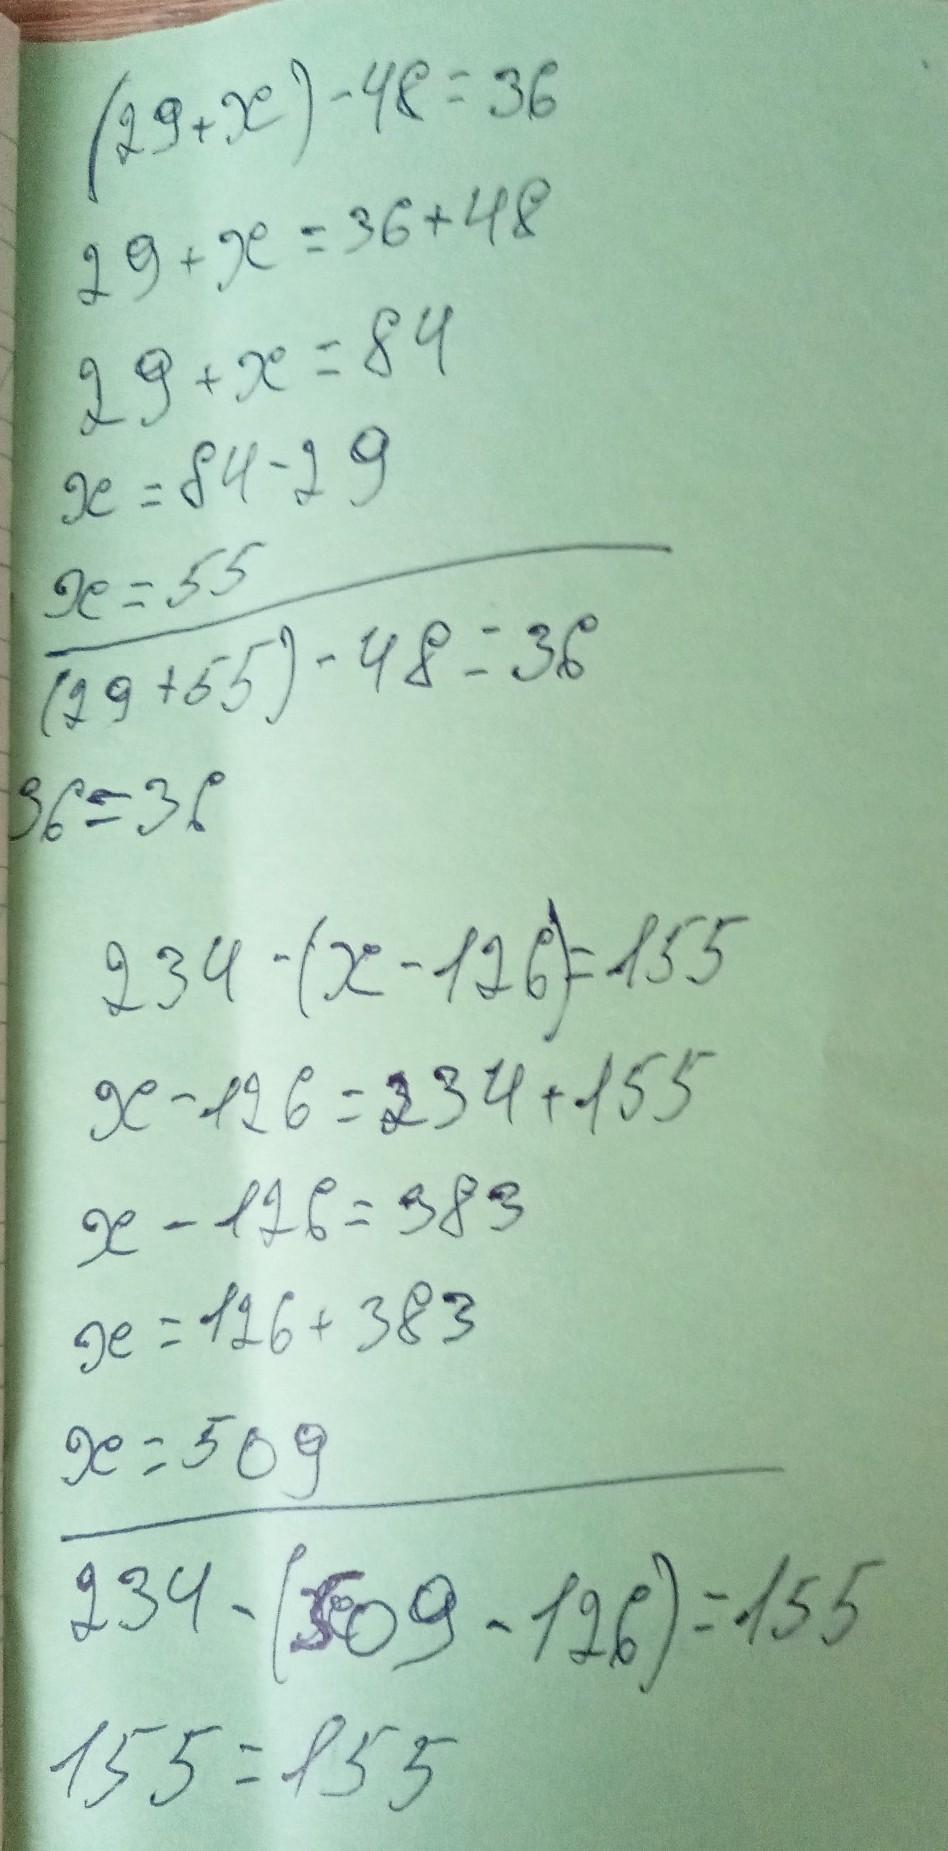 (29+x)-48=36
29+x=36+48
29+x=84
x=84-29
x=55
(29+55)-48=36
36=36
234-(x-126)=155
x-126=234+155
x-126=383
x=126+383
x=509
234-(509-126)=155
155=155